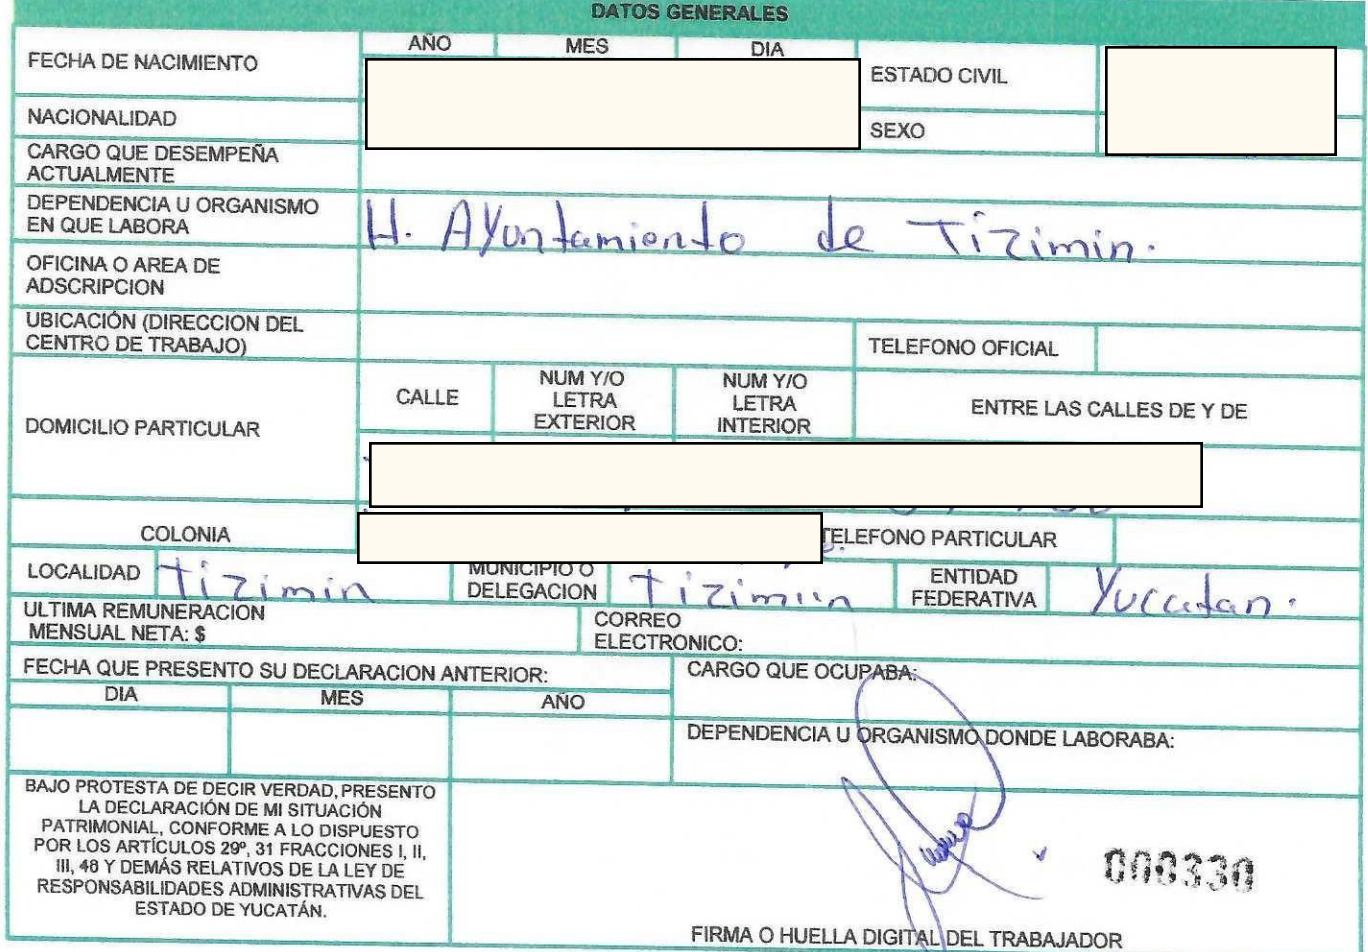 DATOS GENERALES
FECHA DE NACIMIENTO
AÑO MES DIA
ESTADO CIVIL
NACIONALIDAD
SEXO
CARGO QUE DESEMPEÑA
ACTUALMENTE
DEPENDENCIA U ORGANISMO
EN QUE LABORA
H. AYuntamiento de Tizimin.
OFICINA O AREA DE
ADSCRIPCION
UBICACIÓN (DIRECCION DEL
CENTRO DE TRABAJO)
TELEFONO OFICIAL
DOMICILIO PARTICULAR
CALLE
NUM Y/O
LETRA
EXTERIOR
NUM Y/O
LETRA
INTERIOR
ENTRE LAS CALLES DE Y DE
COLONIA
TELEFONO PARTICULAR
LOCALIDAD Tizimin
MUNICIPIO O
DELEGACION
Tizimiin
ENTIDAD
FEDERATIVA
Yucatan.
ULTIMA REMUNERACION
MENSUAL NETA: $
CORREO
ELECTRONICO:
FECHA QUE PRESENTO SU DECLARACION ANTERIOR:
DIA MES AÑO
CARGO QUE OCUPABA:
DEPENDENCIA U ORGANISMO DONDE LABORABA:
BAJO PROTESTA DE DECIR VERDAD, PRESENTO
LA DECLARACIÓN DE MI SITUACIÓN
PATRIMONIAL, CONFORME A LO DISPUESTO
POR LOS ARTÍCULOS 29º, 31 FRACCIONES I, II,
III, 48 Y DEMÁS RELATIVOS DE LA LEY DE
RESPONSABILIDADES ADMINISTRATIVAS DEL
ESTADO DE YUCATÁN.
000330
FIRMA O HUELLA DIGITAL DEL TRABAJADOR